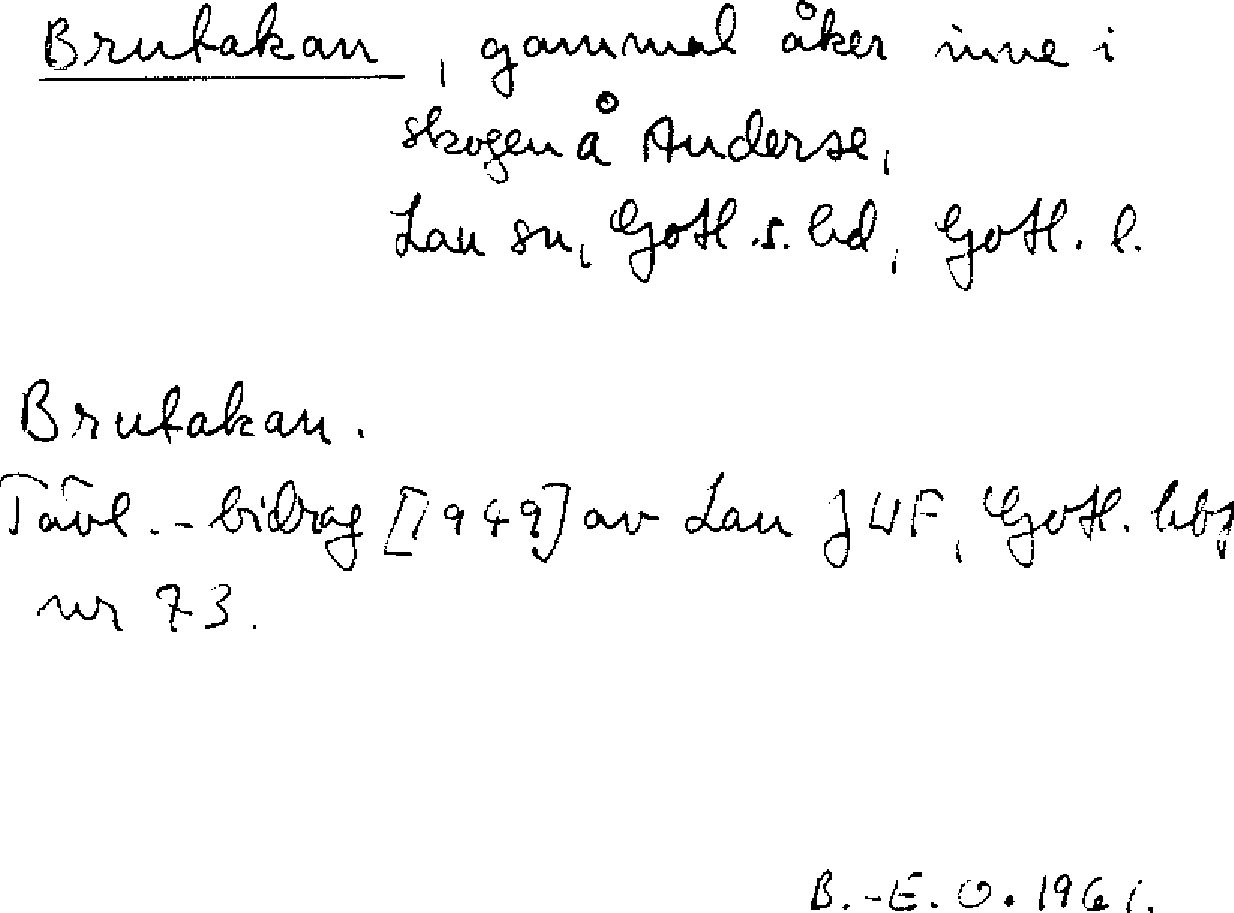 Brutakan, gammal åker inne i
skogen å Anderse,
Lau sn, Gotl. s. hd, Gotl. l.
Brutakan.
Tävl.-bidrag [1949] av Lau JUF, Gotl. hbf
nr 73.
B.-E. O. 1961.